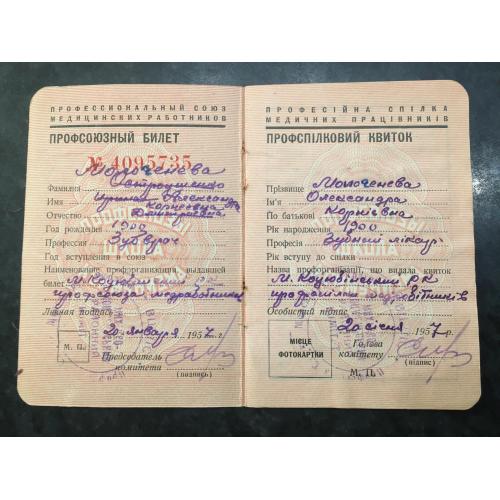 ПРОФЕССИОНАЛЬНЫЙ СОЮЗ
МЕДИЦИНСКИХ РАБОТНИКОВ
ПРОФСОЮЗНЫЙ БИЛЕТ
№ 4095735
Фамилия
Имя Александра
Корнеевна
Отчество Дмитриевна
Год рождения 1900
Профессия Зубврач
Год вступления в союз
Наименование профорганизации, выдавшей
билет М. Коцюбинский РК
профсоюза медработников
Личная подпись
20 января 1957 г.
М. П.
Председатель
комитета
(подпись)
ПРОФЕСІЙНА СПІЛКА
МЕДИЧНИХ ПРАЦІВНИКІВ
ПРОФСПІЛКОВИЙ КВИТОК
Прізвище
Ім'я Олександра
По батькові Корніївна
Рік народження 1900
Професія Зубний лікар
Рік вступу до спілки
Назва профорганізації, що видала квиток
М. Коцюбинський РК
профспілки медробітників
Особистий підпис
20 січня 1957 р.
МІСЦЕ
ФОТОКАРТКИ
Голова
комітету
(підпис)
М. П.